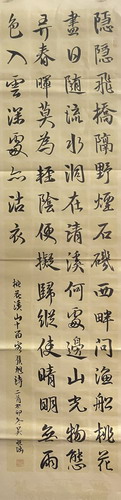 隱隱飛橋隔野煙石磯西畔問漁船桃花
盡日隨流水洞在清溪何處邊山光物態
弄春暉莫為輕陰便擬歸縱使晴明無雨
色入雲深處亦沾衣
桃花溪山中留客張旭詩二首